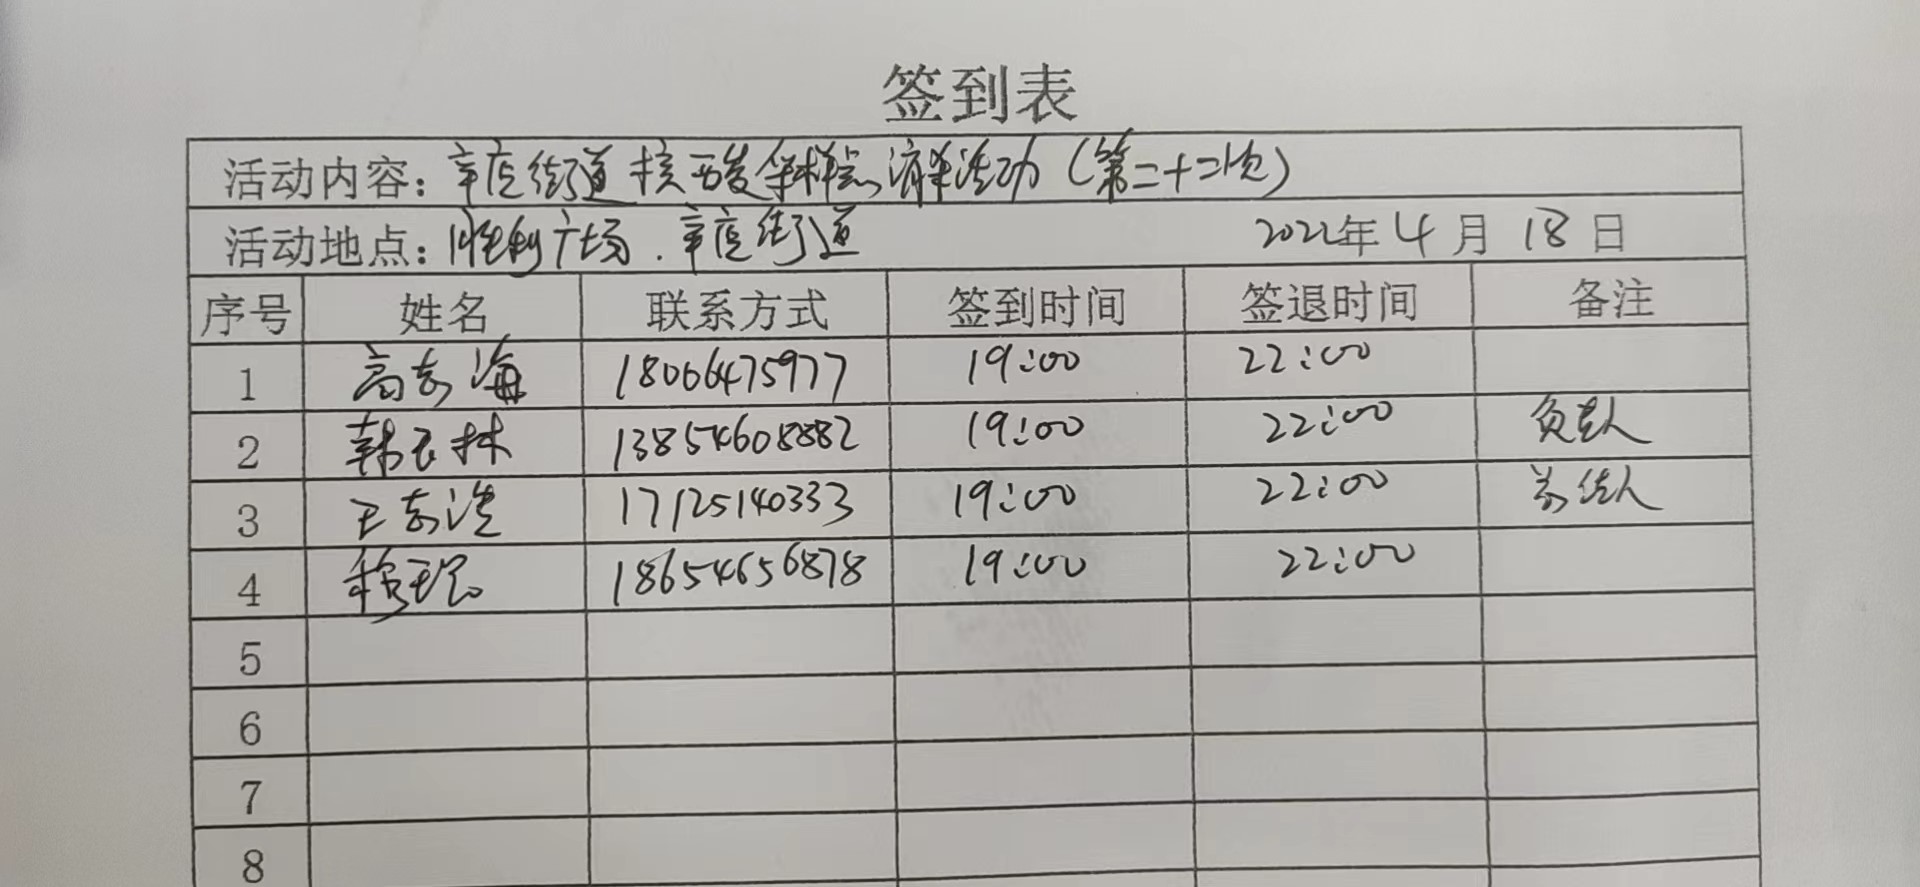 签到表
活动内容：辛店街道核酸采样点消杀活动（第二十二次）
活动地点：胜利广场.辛店街道 2022年4月18日
序号 姓名 联系方式 签到时间 签退时间 备注
1 高东海 18066475977 19:00 22:00
2 韩玉林 13854608882 19:00 22:00 负责人
3 王东浩 17125140333 19:00 22:00
4 18654656878 19:00 22:00
5
6
7
8